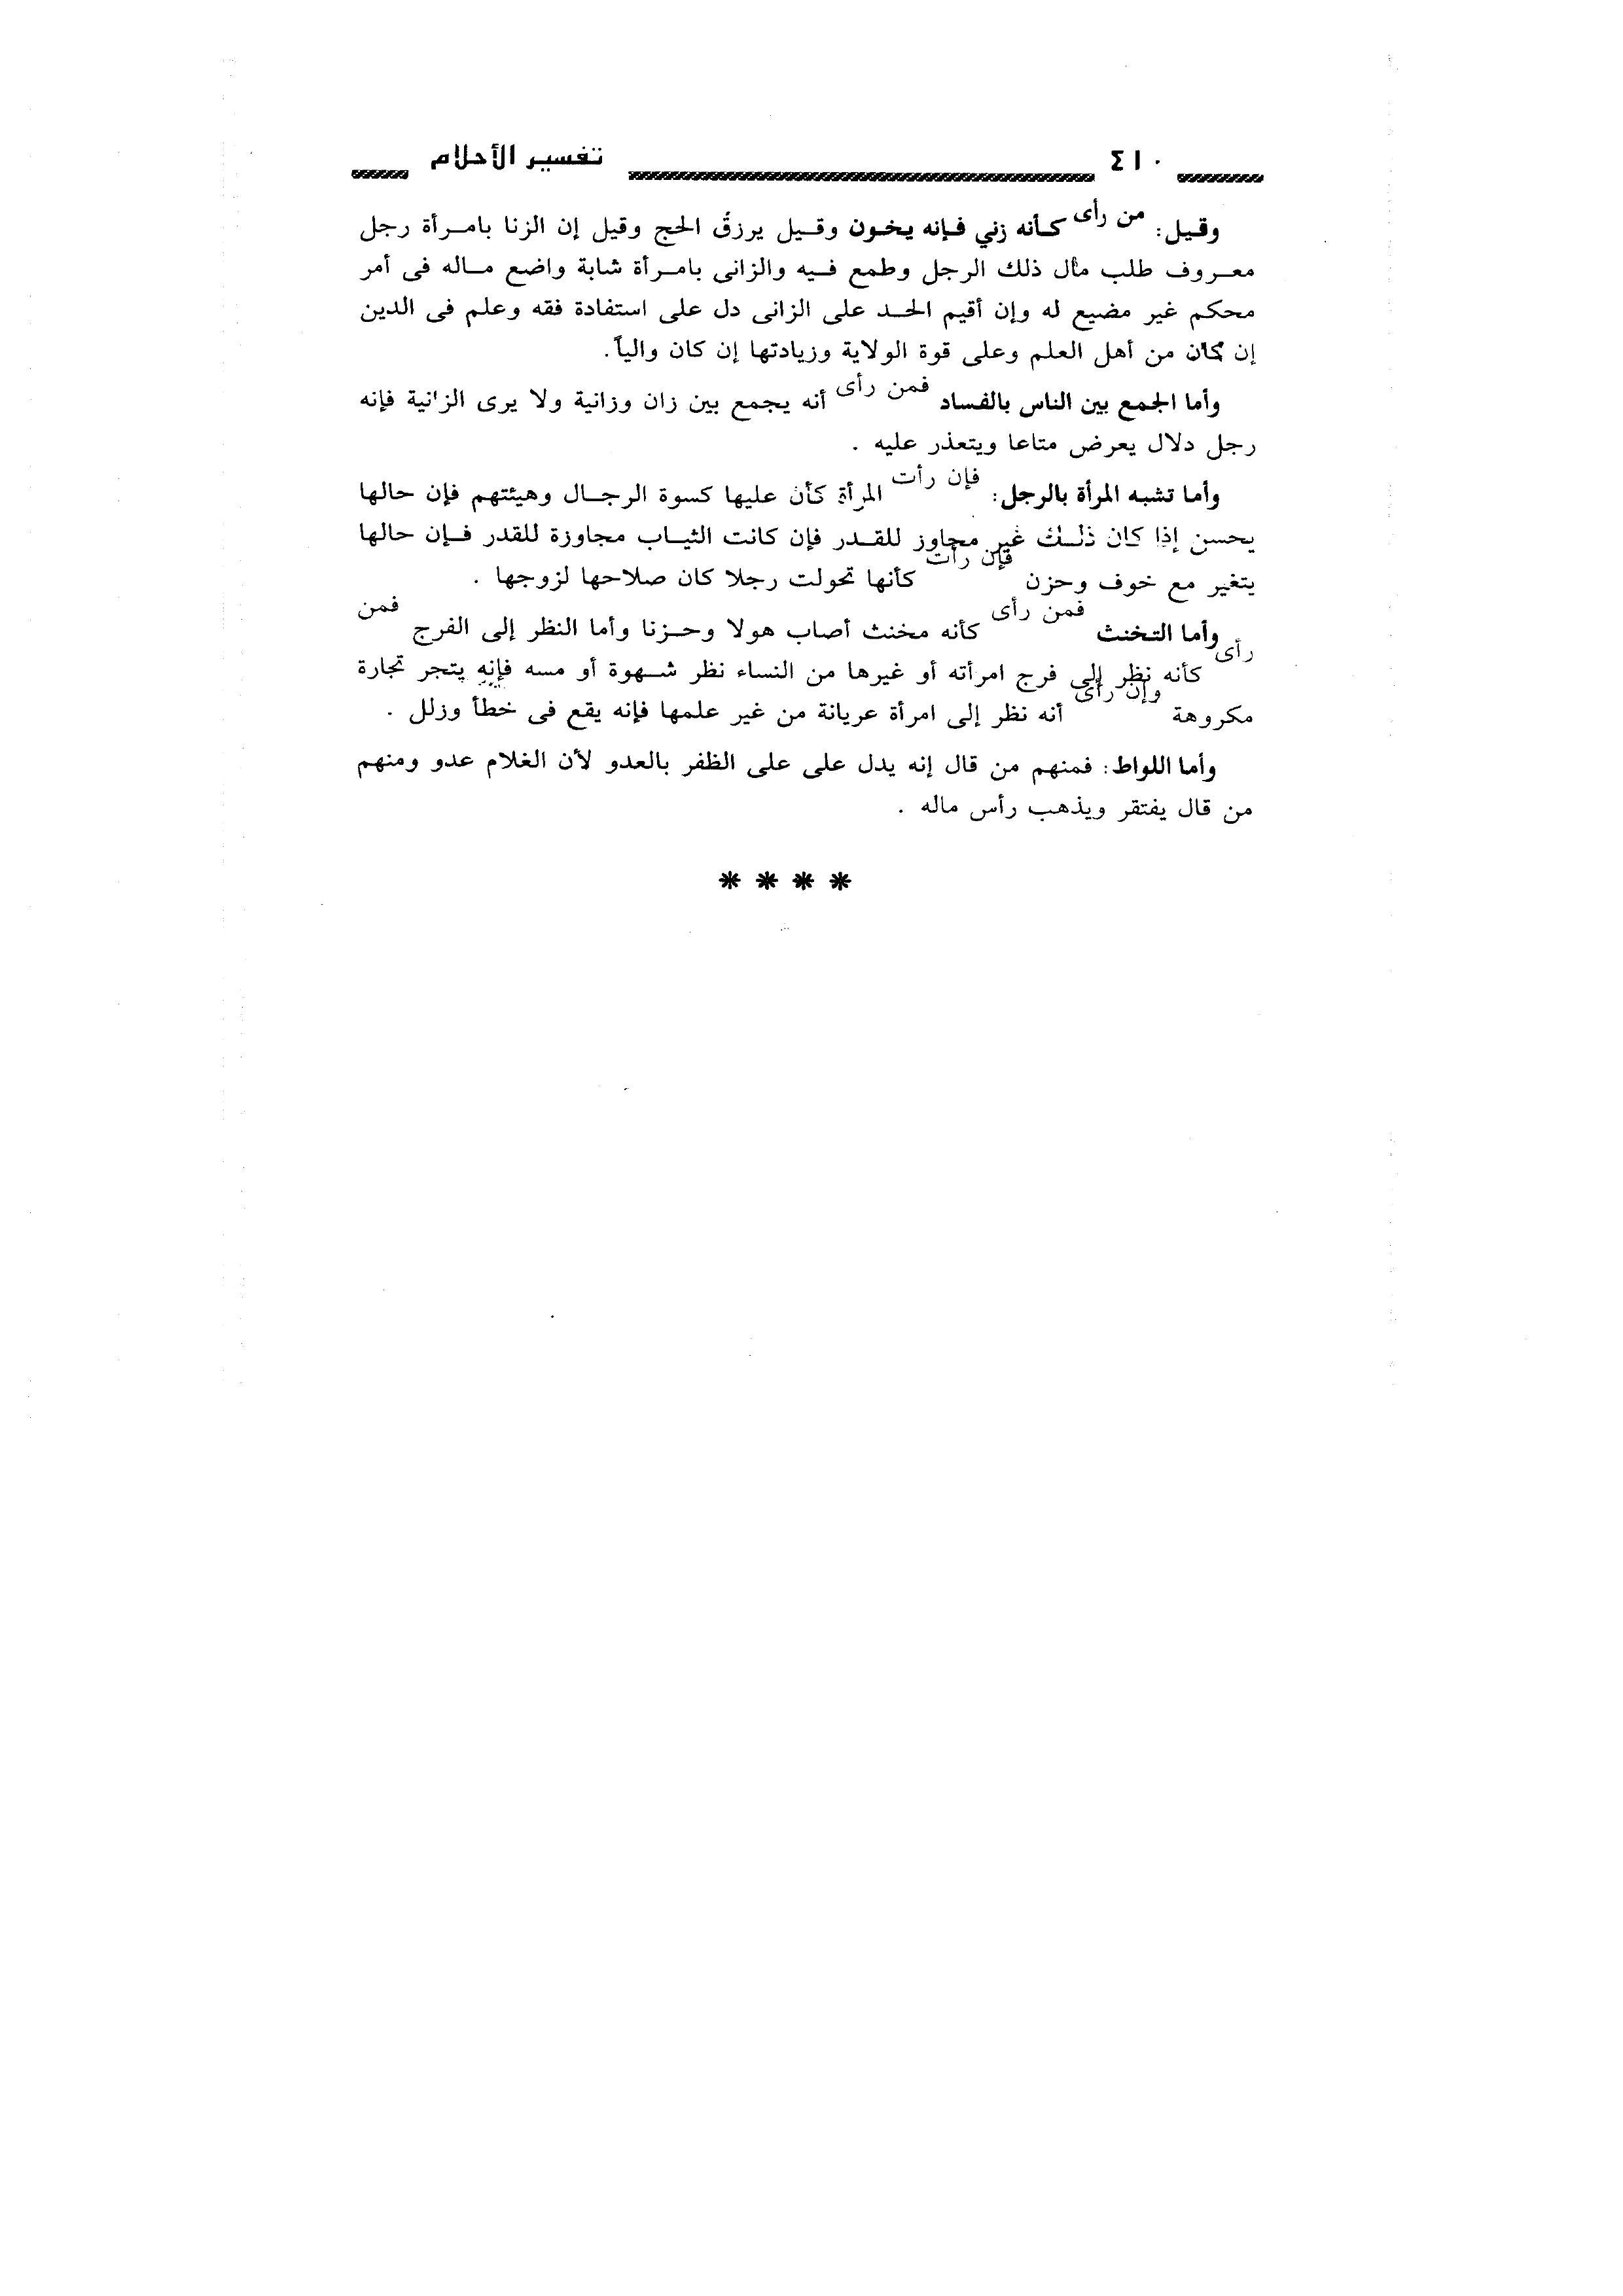 ٤١٠ تفسير الأحلام
وقيل: من رأى كأنه زني فإنه يخون وقيل يرزق الحج وقيل إن الزنا بامرأة رجل
معروف طلب مال ذلك الرجل وطمع فيه والزانى بامرأة شابة واضع ماله فى أمر
محكم غير مضيع له وإن أقيم الحد على الزانى دل على استفادة فقه وعلم فى الدين
إن كان من أهل العلم وعلى قوة الولاية وزيادتها إن كان والياً.
وأما الجمع بين الناس بالفساد فمن رأى أنه يجمع بين زان وزانية ولا يرى الزانية فإنه
رجل دلال يعرض متاعا ويتعذر عليه .
وأما تشبه المرأة بالرجل: فإن رأت المرأة كأن عليها كسوة الرجال وهيئتهم فإن حالها
يحسن إذا كان ذلك غير مجاوز للقدر فإن كانت الثياب مجاوزة للقدر فإن حالها
يتغير مع خوف وحزن فإن رأت كأنها تحولت رجلا كان صلاحها لزوجها .
وأما التخنث فمن رأى كأنه مخنث أصاب هولا وحزنا وأما النظر إلى الفرج فمن
رأى كأنه نظر إلى فرج امرأته أو غيرها من النساء نظر شهوة أو مسه فإنه يتجر تجارة
مكروهة وإن رأى أنه نظر إلى امرأة عريانة من غير علمها فإنه يقع فى خطأ وزلل .
وأما اللواط: فمنهم من قال إنه يدل على على الظفر بالعدو لأن الغلام عدو ومنهم
من قال يفتقر ويذهب رأس ماله .
* * * *